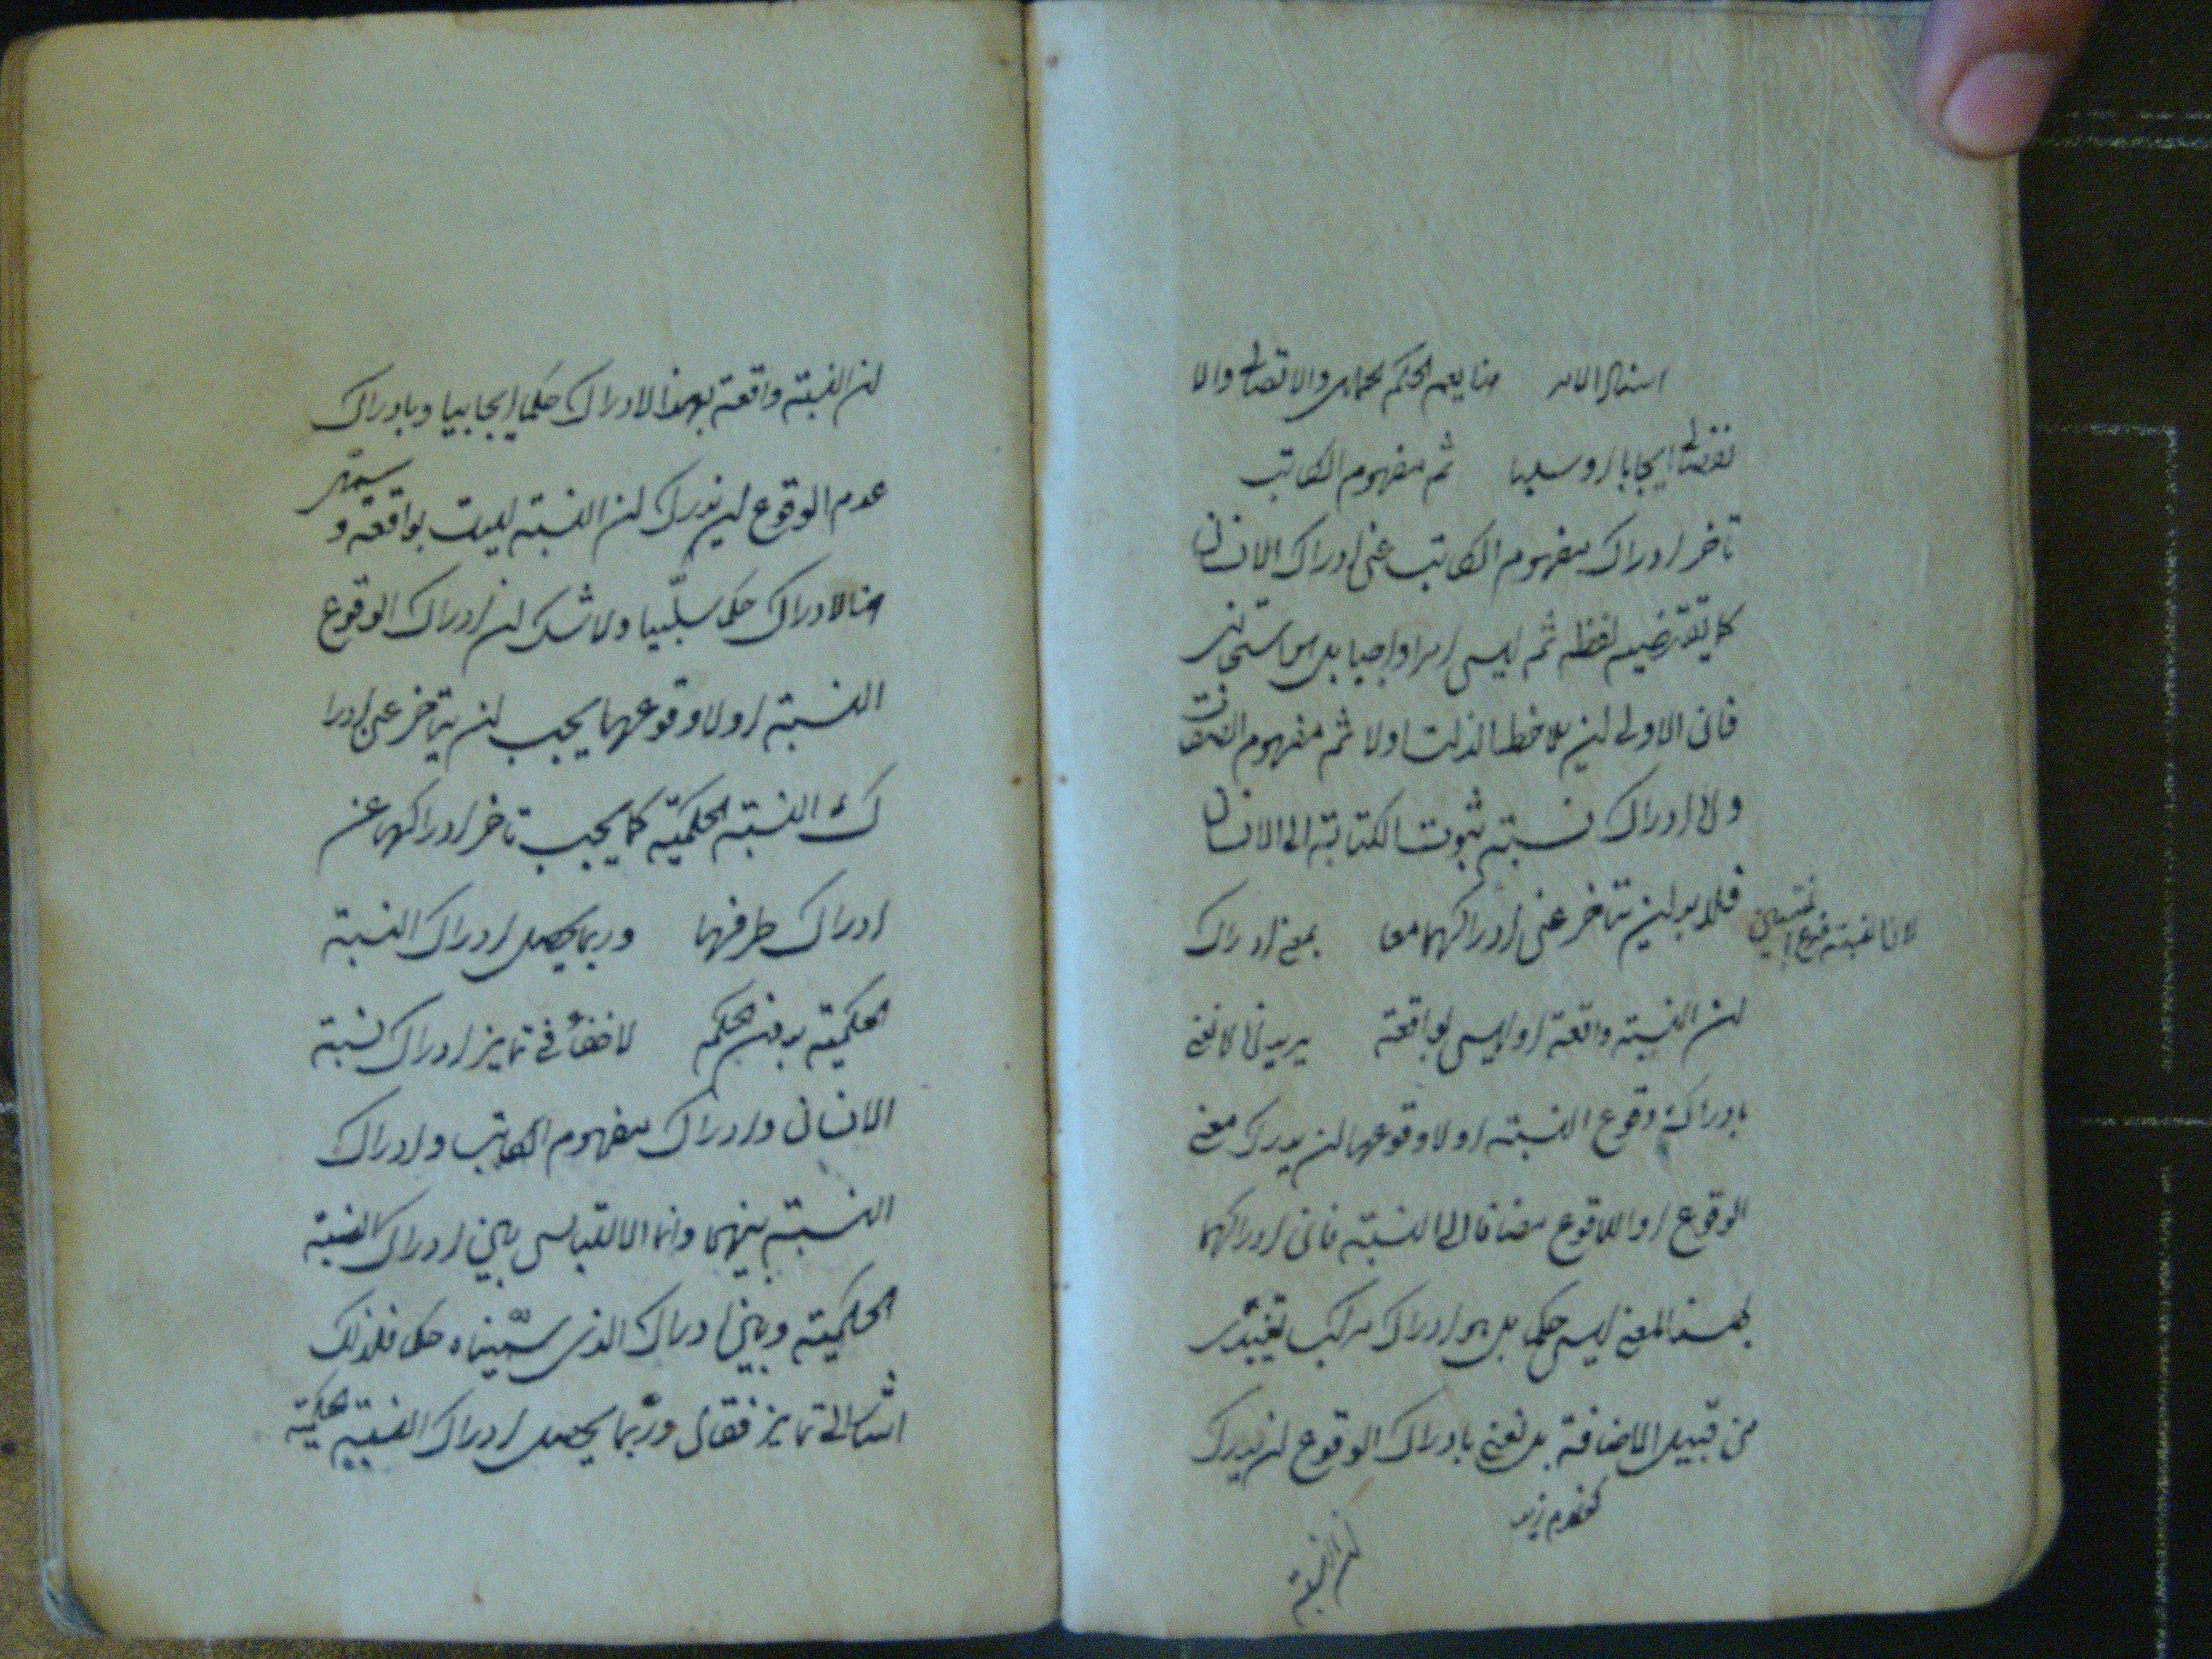 اسناد امر هذا يعم الحكم الحملي والاتصالي والا
نفصالي ايجابا او سلبا ثم مفهوم الكاتب
تأخر ادراك مفهوم الكاتب عن ادراك الانسان
كما يقتضيه لفظه ثم ليس امرا واجبا بل هو استحسانى
فان الاولى ان يلاحظ الذات اولا ثم مفهوم الصفات
ولا ادراك نسبته ثبوت الكتابة الى الانسان
فلا بد ان يتأخر عن ادراكهما معا بمعنى ادراك
لان النسبة فرع المنتسبين
ان النسبة واقعة او ليس بواقعة يريد انا لا نعنى
بادراك وقوع النسبة او لا وقوعها ان يدرك معنى
الوقوع او اللاوقوع مضافا الى النسبة فان ادراكهما
بهذا المعنى ليس حكما بل هو ادراك مركب تقييدى
من قبيل الاضافة بل نعنى بادراك الوقوع ان يدرك
ان النسبة
ان النسبة واقعة بهذا الادراك حكما ايجابيا وبادراك
عدم الوقوع ان ندرك ان النسبة ليست بواقعة و
هذا الادراك حكما سلبيا ولا شك ان ادراك الوقوع
النسبة او لا وقوعها يجب ان يتأخر عن ادرا
ك النسبة الحكمية كما يجب تأخر ادراكها عن
ادراك طرفيها وربما يحصل ادراك النسبة
الحكمية بدون الحكم لا خفاء في تمايز ادراك نسبة
الانسان وادراك مفهوم الكاتب وادراك
النسبة بينهما وانما الالتباس بين ادراك النسبة
الحكمية وبين ادراك الذى سميناه حكما فلذلك
اشار الى تمايز فقال وربما يحصل ادراك النسبة الحكمية